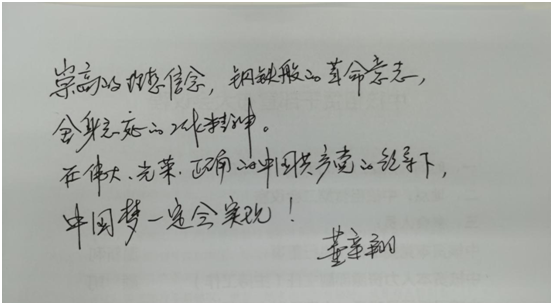 崇高的理想信念，钢铁般的革命意志，
舍身忘死的牺牲精神。
在伟大、光荣、正确的中国共产党的领导下，
中国梦一定会实现！
董章翔